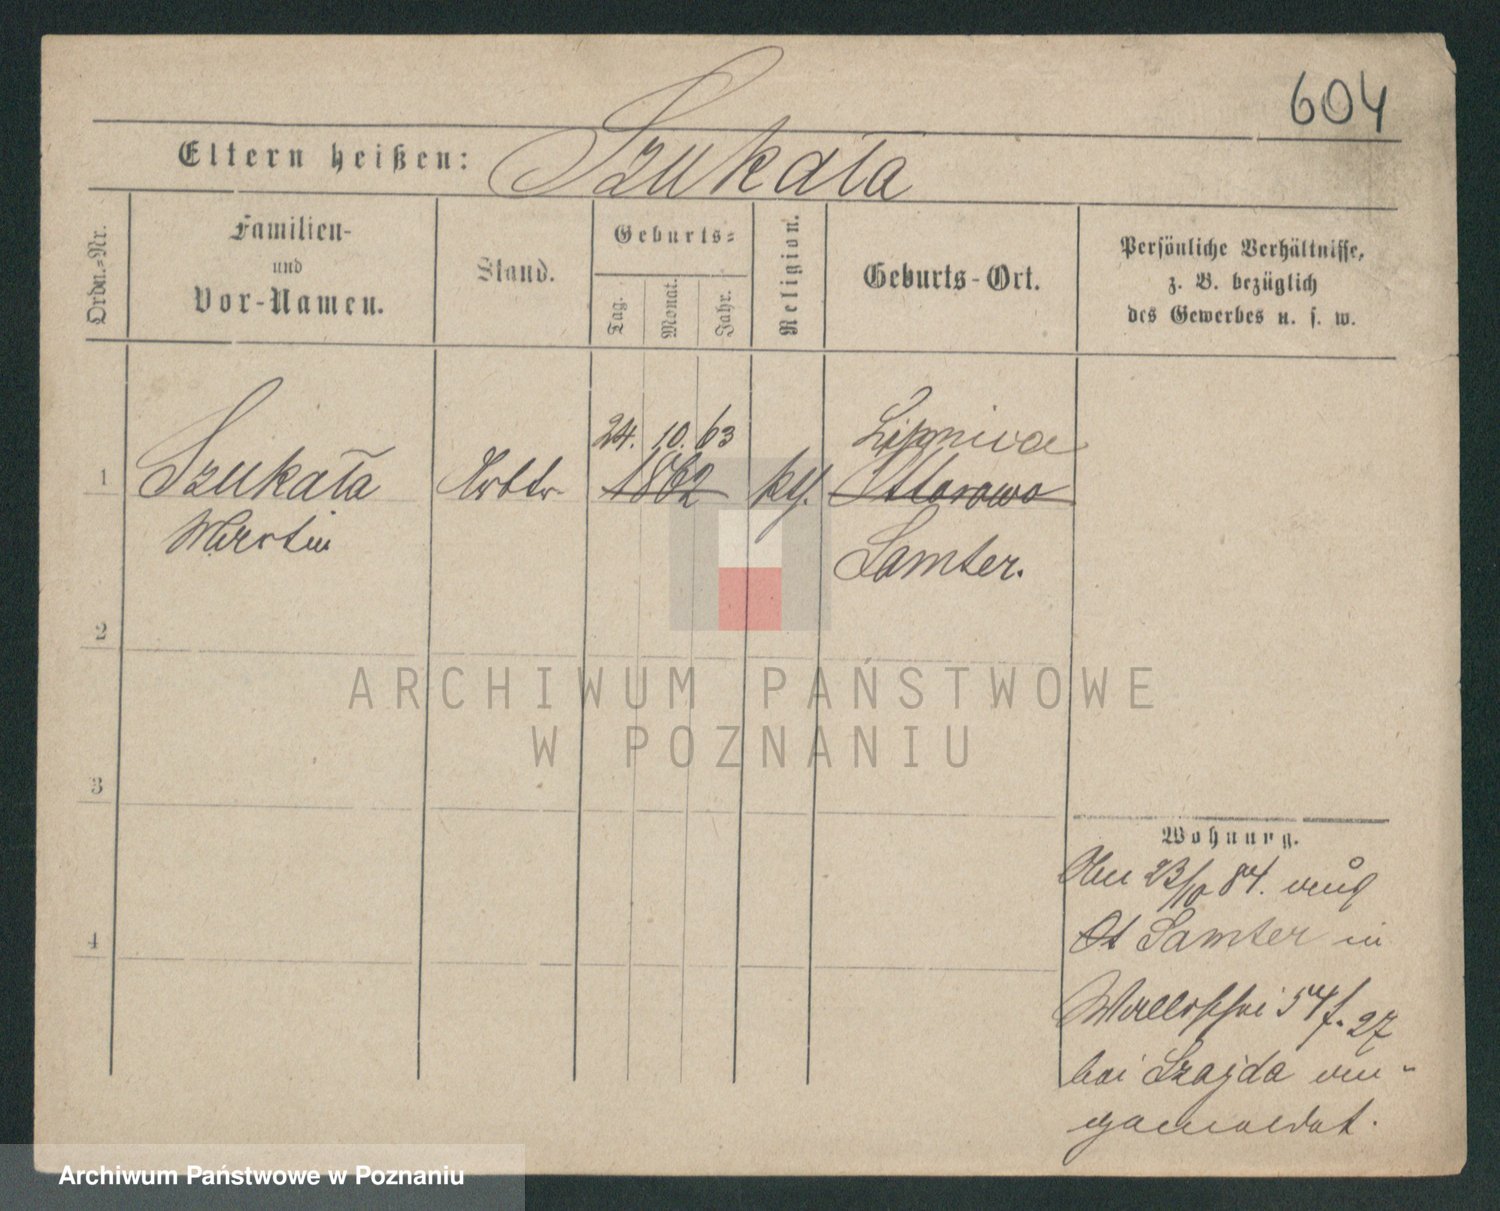 604
Eltern heißen: Szukała
Ordn.-Nr.
Familien-
und
Vor-Namen.
Stand.
Geburts-
Tag.
Monat.
Jahr.
Religion.
Geburts-Ort.
Persönliche Verhältnisse,
z. B. bezüglich
des Gewerbes u. s. w.
24. 10. 63 Lipnica
1 Szukała Arbtr 1862 kth. Ottorowo
Martin
Samter.
2
ARCHIWUM PAŃSTWOWE
W POZNANIU
3
Wohnung.
Am 23/10 84.
Samter in
Wallischei 54
bei Szajda an-
gemeldet.
4
Archiwum Państwowe w Poznaniu